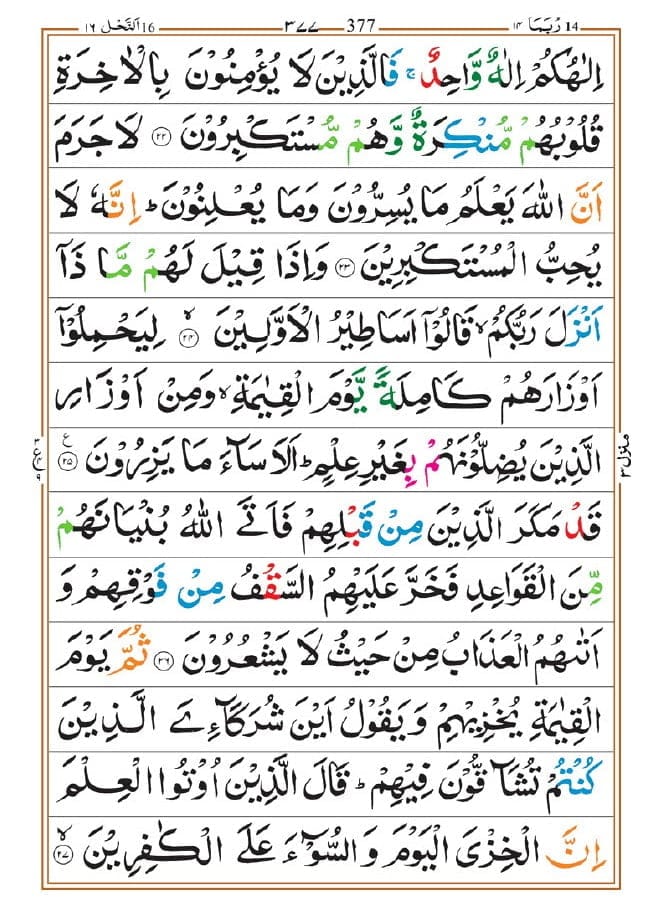 16 اَلنَّحْل ١٦ ٣٧٧ 377 ١٤ رُبَمَا 14
اِلٰهُكُمْ اِلٰهٌ وَّاحِدٌ ۚ فَالَّذِيْنَ لَا يُؤْمِنُوْنَ بِالْاٰخِرَةِ
قُلُوْبُهُمْ مُّنْكِرَةٌ وَّهُمْ مُّسْتَكْبِرُوْنَ ﴿٢٢﴾ لَا جَرَمَ
اَنَّ اللّٰهَ يَعْلَمُ مَا يُسِرُّوْنَ وَمَا يُعْلِنُوْنَ ؕ اِنَّهٗ لَا
يُحِبُّ الْمُسْتَكْبِرِيْنَ ﴿٢٣﴾ وَاِذَا قِيْلَ لَهُمْ مَّا ذَاۤ
اَنْزَلَ رَبُّكُمْ ۙ قَالُوْۤا اَسَاطِيْرُ الْاَوَّلِيْنَ ۙ ﴿٢٤﴾ لِيَحْمِلُوْۤا
اَوْزَارَهُمْ كَامِلَةً يَّوْمَ الْقِيٰمَةِ ۙ وَمِنْ اَوْزَارِ
الَّذِيْنَ يُضِلُّوْنَهُمْ بِغَيْرِ عِلْمٍ ؕ اَلَا سَآءَ مَا يَزِرُوْنَ ﴿٢٥﴾ ع
منزل ٣
قَدْ مَكَرَ الَّذِيْنَ مِنْ قَبْلِهِمْ فَاَتَى اللّٰهُ بُنْيَانَهُمْ
مِّنَ الْقَوَاعِدِ فَخَرَّ عَلَيْهِمُ السَّقْفُ مِنْ فَوْقِهِمْ وَ
اَتٰىهُمُ الْعَذَابُ مِنْ حَيْثُ لَا يَشْعُرُوْنَ ﴿٢٦﴾ ثُمَّ يَوْمَ
الْقِيٰمَةِ يُخْزِيْهِمْ وَيَقُوْلُ اَيْنَ شُرَكَآءِىَ الَّذِيْنَ
كُنْتُمْ تُشَآقُّوْنَ فِيْهِمْ ؕ قَالَ الَّذِيْنَ اُوْتُوا الْعِلْمَ
اِنَّ الْخِزْىَ الْيَوْمَ وَالسُّوْٓءَ عَلَى الْكٰفِرِيْنَ ۙ ﴿٢٧﴾